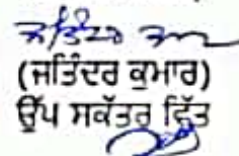 (ਜਤਿੰਦਰ ਕੁਮਾਰ)
ਉੱਪ ਸਕੱਤਰ ਵਿੱਤ